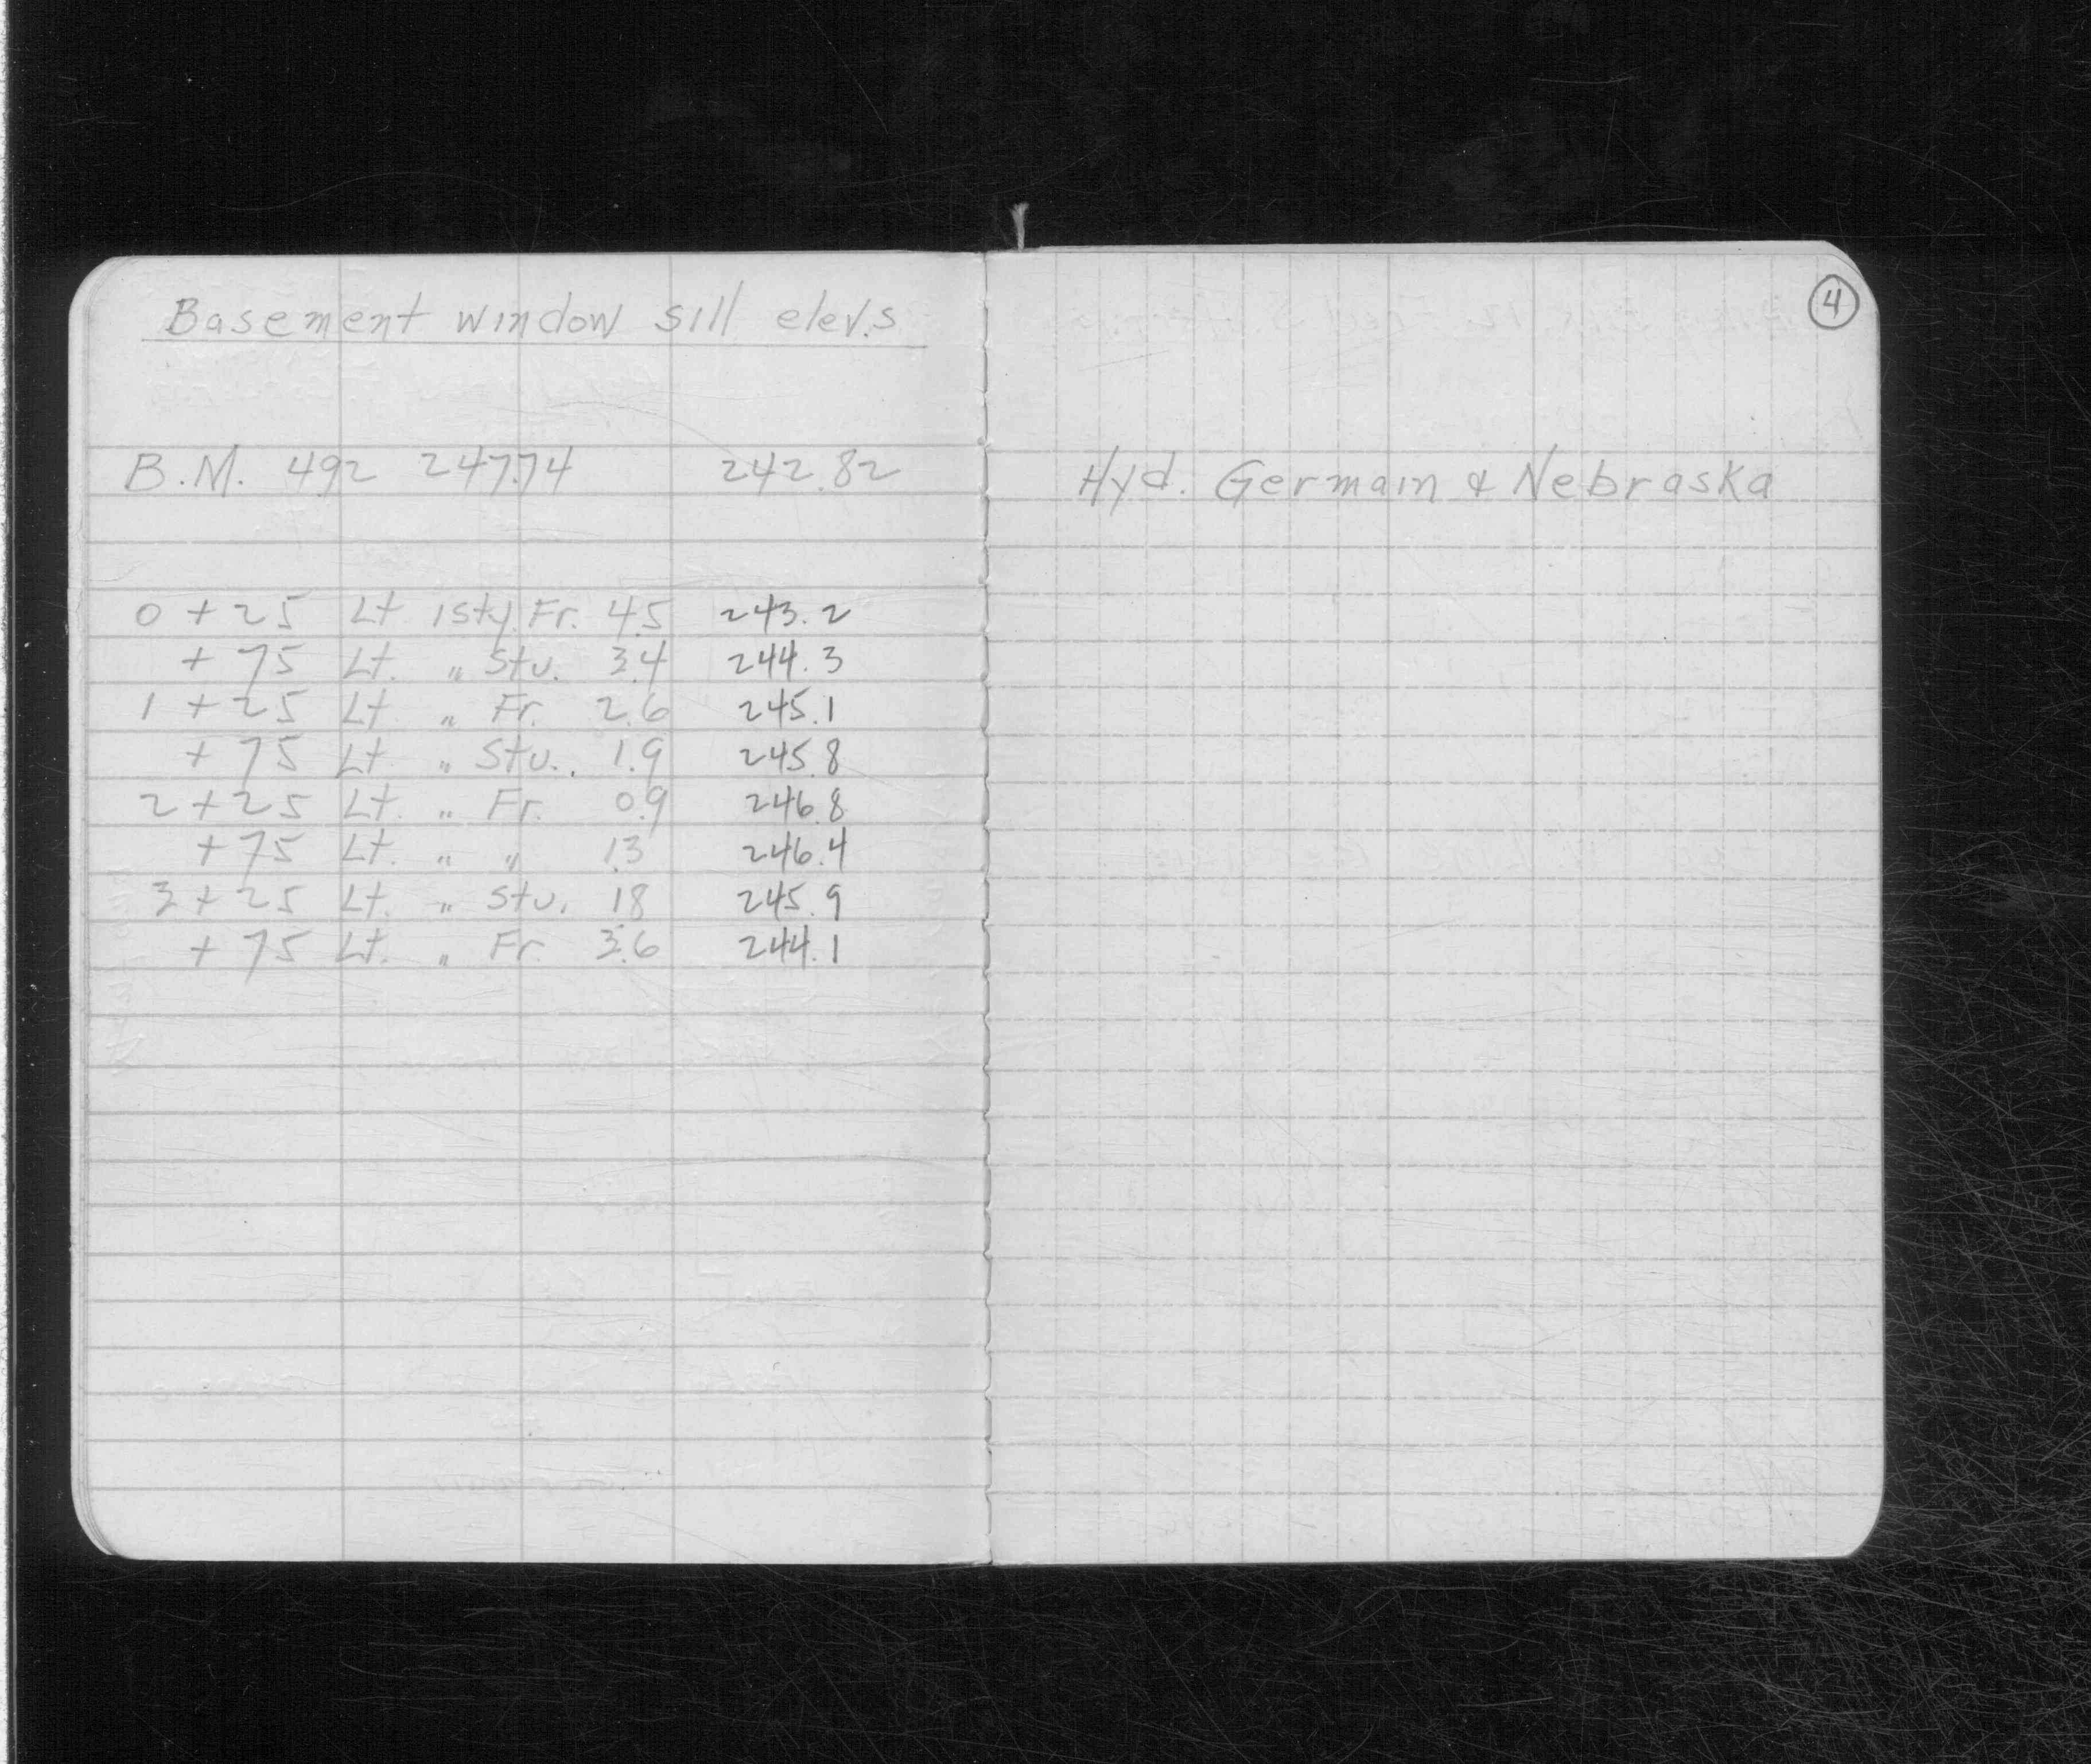 Basement window sill elev.s
B.M. 4.92 247.74 242.82
0 + 25 Lt 1 sty. Fr. 4.5 243.2
+ 75 Lt. " Stu. 3.4 244.3
1 + 25 Lt. " Fr. 2.6 245.1
+ 75 Lt " Stu. 1.9 245.8
2 + 25 Lt. " Fr. 0.9 246.8
+ 75 Lt. " " 1.3 246.4
3 + 25 Lt. " Stu. 1.8 245.9
+ 75 Lt. " Fr. 3.6 244.1
4
Hyd. Germain & Nebraska